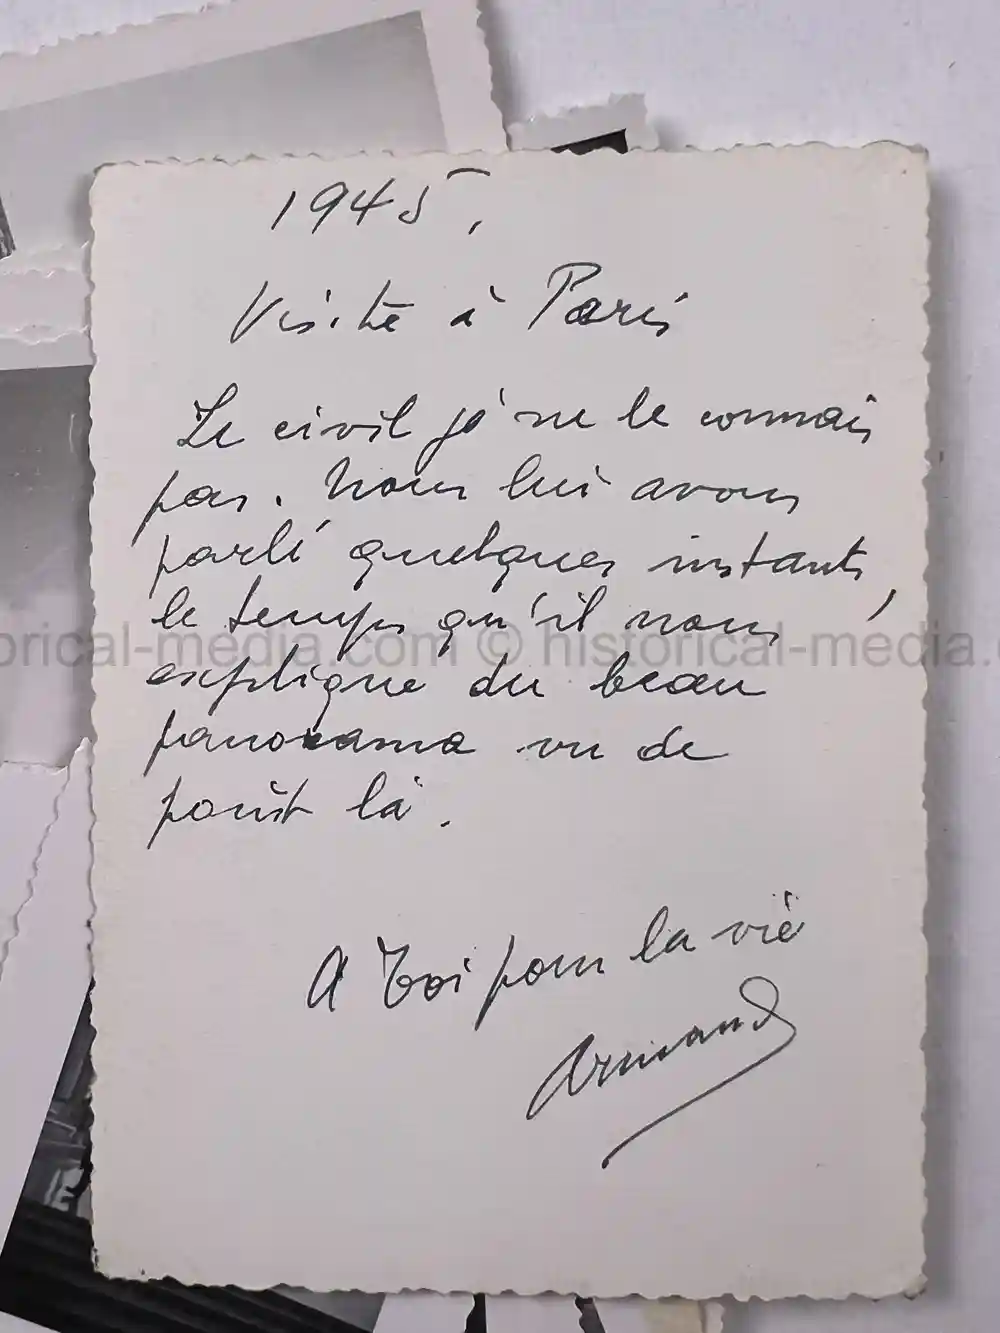 1945.
Visite à Paris
Le civil je ne le connais
pas. Nous lui avons
parlé quelques instants,
le temps qu'il nous
explique du beau
panorama vu de
point là.
A Toi pour la vie
Armand
orical-media.com © historical-media.c